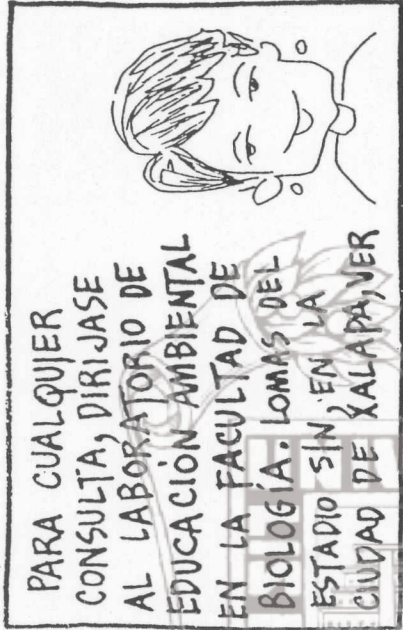 PARA CUALQUIER
CONSULTA, DIRIJASE
AL LABORATORIO DE
EDUCACIÓN AMBIENTAL
EN LA FACULTAD DE
BIOLOGÍA. LOMAS DEL
ESTADIO S/N, EN LA
CIUDAD DE XALAPA, VER